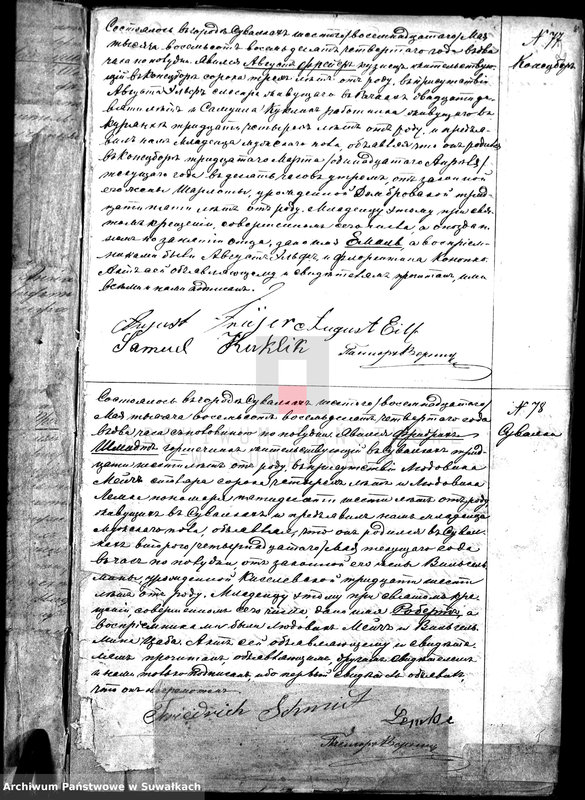 Состоялось въ городѣ Сувалкахъ шестого /восемнадцатаго/ Мая
тысяча восемьсотъ восемьдесятъ четвертаго года въ два
часа по полудни. Явился Августъ кузнецъ жительствую-
щій въ сорока трехъ лѣтъ отъ роду, въ присутствіи
Августа слесаря живущаго въ двадцати де-
вяти лѣтъ и Самуила работника живущаго въ
тридцати четырехъ лѣтъ отъ роду, и предъя-
вилъ намъ младенца мужескаго пола, объявляя что онъ родился
въ тридцатаго Марта /одинадцатаго Апрѣля/
текущаго года въ десять часовъ утромъ, отъ законной
его жены Шарлоты, урожденной Домбровской трид-
цати пяти лѣтъ отъ роду. Младенцу этому при свя-
томъ крещеніи, совершенномъ сего числа, а опоздан-
номъ по занятіи отца, дано имя Емиль, а воспріем-
никами были Августъ и Флорентина
Актъ сей объявляющему и свидѣтелямъ прочитанъ, ими
всѣми и нами подписанъ.
August August Eilf
Samuel Kuklik Пасторъ
№ 77
Состоялось въ городѣ Сувалкахъ шестого /восемнадцатаго/
Мая тысяча восемьсотъ восемьдесятъ четвертаго года
въ два часа по полудни. Явился Фридрихъ
Шмидтъ жительствующій въ Сувалкахъ трид-
цати шести лѣтъ отъ роду, въ присутствіи Людовика
сорока четырехъ лѣтъ и Людовика
пономаря пятидесяти шести лѣтъ отъ роду
живущихъ въ Сувалкахъ и предъявилъ намъ младенца
мужескаго пола, объявляя, что онъ родился въ Сувал-
кахъ второго /четырнадцатаго/ Мая текущаго года
въ часъ по полудни, отъ законной его жены Вильгель-
мины, урожденной Киселевской тридцати шести
лѣтъ отъ роду. Младенцу этому при святомъ кре-
щеніи, совершенномъ сего числа дано имя Робертъ, а
воспріемниками были Людовикъ и Вильгель-
мина Актъ сей объявляющему и свидѣте-
лямъ прочитанъ объявляющимъ, другимъ свидѣтелемъ
и нами только подписанъ, ибо первый свидѣтель объявилъ
что онъ неграмотенъ
Friedrich Schmidt
Пасторъ
№ 78
Сувалки
Archiwum Państwowe w Suwałkach